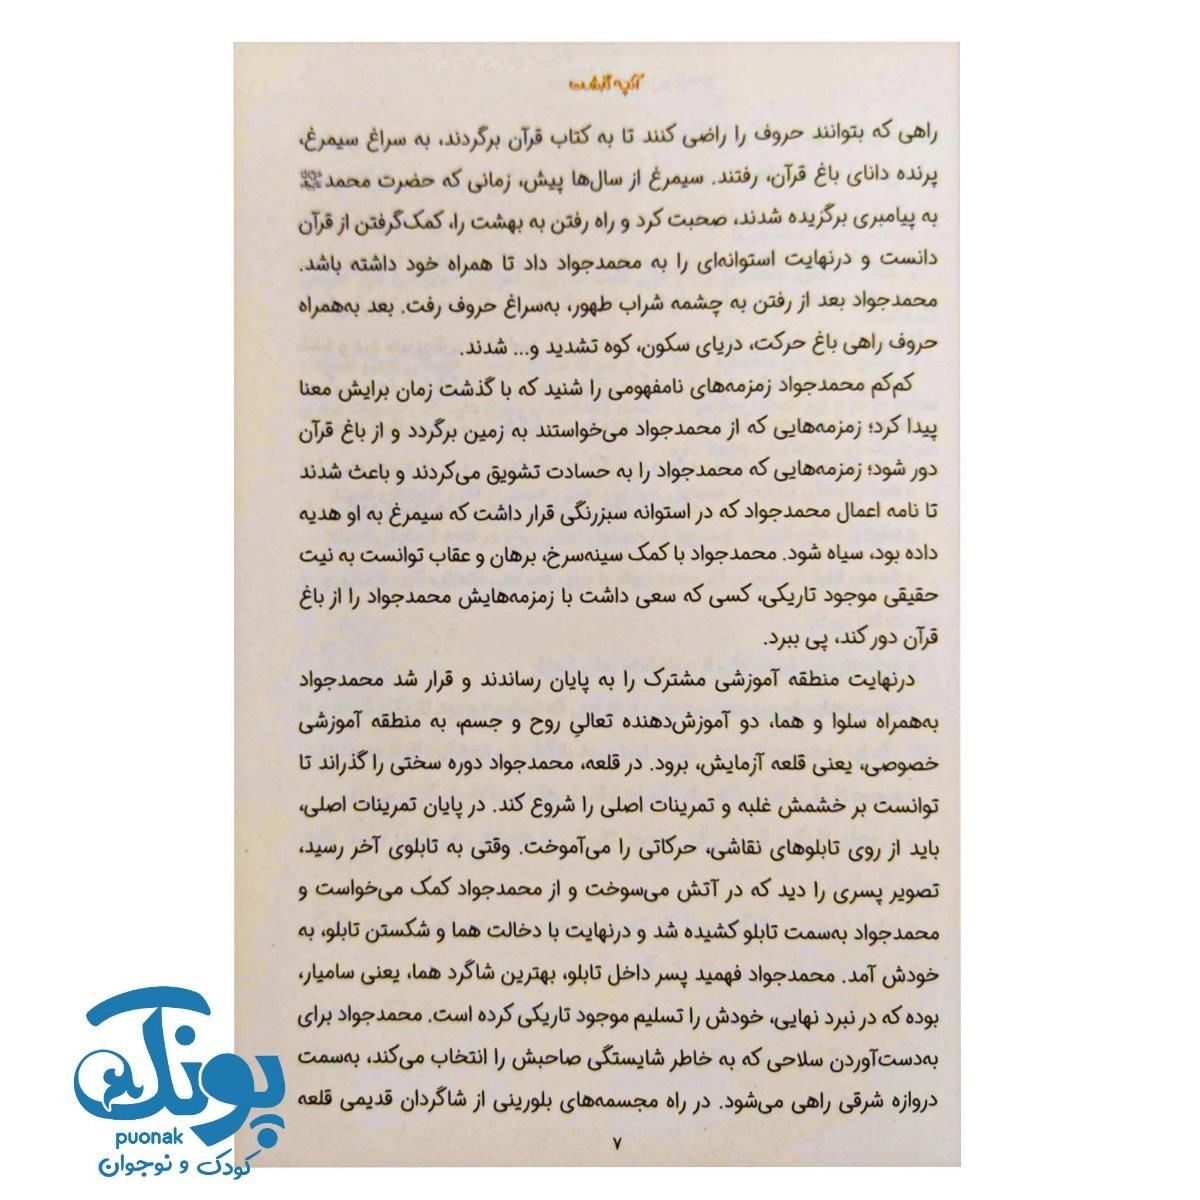 آنچه گذشت
راهی که بتوانند حروف را راضی کنند تا به کتاب قرآن برگردند، به سراغ سیمرغ،
پرنده دانای باغ قرآن، رفتند. سیمرغ از سال‌ها پیش، زمانی که حضرت محمد
به پیامبری برگزیده شدند، صحبت کرد و راه رفتن به بهشت را، کمک‌گرفتن از قرآن
دانست و درنهایت استوانه‌ای را به محمدجواد داد تا همراه خود داشته باشد.
محمدجواد بعد از رفتن به چشمه شراب طهور، به‌سراغ حروف رفت. بعد به‌همراه
حروف راهی باغ حرکت، دریای سکون، کوه تشدید و... شدند.
کم‌کم محمدجواد زمزمه‌های نامفهومی را شنید که با گذشت زمان برایش معنا
پیدا کرد؛ زمزمه‌هایی که از محمدجواد می‌خواستند به زمین برگردد و از باغ قرآن
دور شود؛ زمزمه‌هایی که محمدجواد را به حسادت تشویق می‌کردند و باعث شدند
تا نامه اعمال محمدجواد که در استوانه سبزرنگی قرار داشت که سیمرغ به او هدیه
داده بود، سیاه شود. محمدجواد با کمک سینه‌سرخ، برهان و عقاب توانست به نیت
حقیقی موجود تاریکی، کسی که سعی داشت با زمزمه‌هایش محمدجواد را از باغ
قرآن دور کند، پی ببرد.
درنهایت منطقه آموزشی مشترک را به پایان رساندند و قرار شد محمدجواد
به‌همراه سلوا و هما، دو آموزش‌دهنده تعالیِ روح و جسم، به منطقه آموزشی
خصوصی، یعنی قلعه آزمایش، برود. در قلعه، محمدجواد دوره سختی را گذراند تا
توانست بر خشمش غلبه و تمرینات اصلی را شروع کند. در پایان تمرینات اصلی،
باید از روی تابلوهای نقاشی، حرکاتی را می‌آموخت. وقتی به تابلوی آخر رسید،
تصویر پسری را دید که در آتش می‌سوخت و از محمدجواد کمک می‌خواست و
محمدجواد به‌سمت تابلو کشیده شد و درنهایت با دخالت هما و شکستن تابلو، به
خودش آمد. محمدجواد فهمید پسر داخل تابلو، بهترین شاگرد هما، یعنی سامیار،
بوده که در نبرد نهایی، خودش را تسلیم موجود تاریکی کرده است. محمدجواد برای
به‌دست‌آوردن سلاحی که به خاطر شایستگی صاحبش را انتخاب می‌کند، به‌سمت
دروازه شرقی راهی می‌شود. در راه مجسمه‌های بلورینی از شاگردان قدیمی قلعه
۷
پونک
puonak
کودک و نوجوان